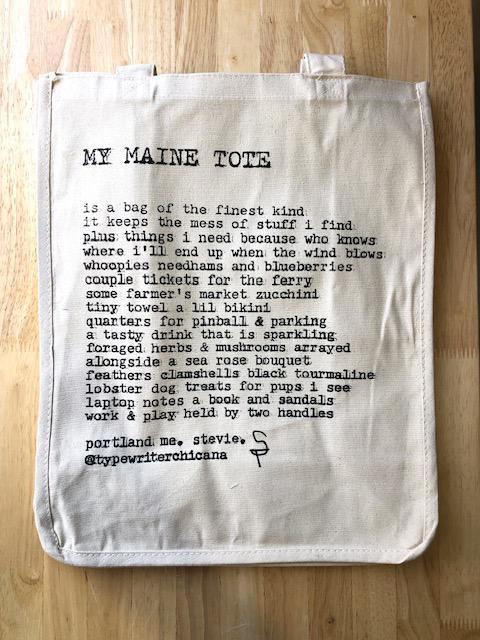 MY MAINE TOTE
is a bag of the finest kind
it keeps the mess of stuff i find
plus things i need because who knows
where i'll end up when the wind blows
whoopies needhams and blueberries
couple tickets for the ferry
some farmer's market zucchini
tiny towel a lil bikini
quarters for pinball & parking
a tasty drink that is sparkling
foraged herbs & mushrooms arrayed
alongside a sea rose bouquet
feathers clamshells black tourmaline
lobster dog treats for pups i see
laptop notes a book and sandals
work & play held by two handles
portland me. stevie.
@typewriterchicana